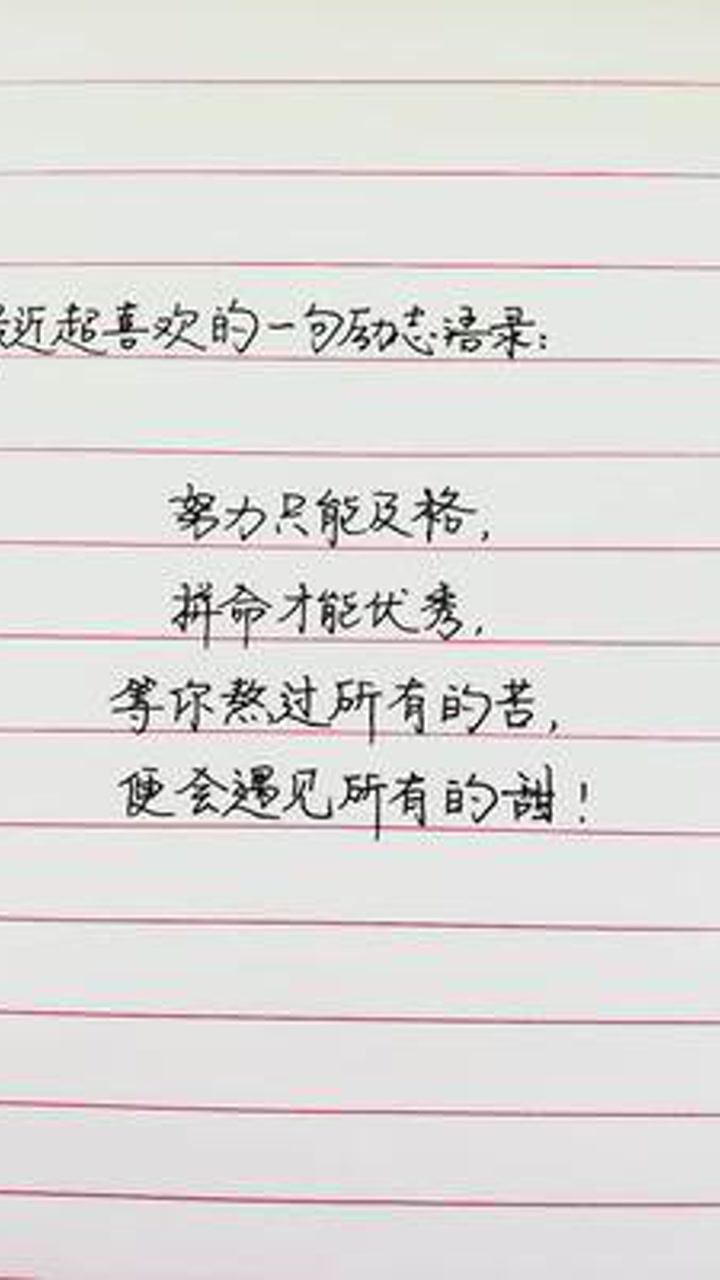 最近超喜欢的一句励志语录:
努力只能及格,
拼命才能优秀,
等你熬过所有的苦,
便会遇见所有的甜!